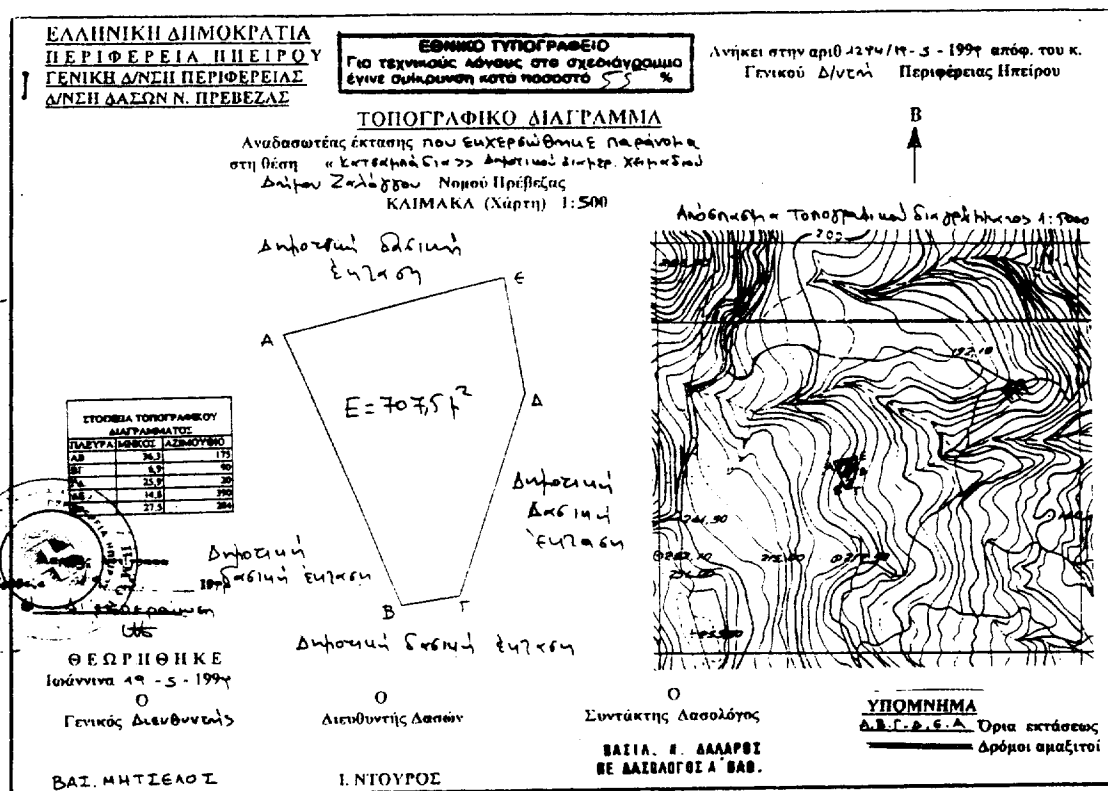 ΕΛΛΗΝΙΚΗ ΔΗΜΟΚΡΑΤΙΑ
ΠΕΡΙΦΕΡΕΙΑ ΗΠΕΙΡΟΥ
ΓΕΝΙΚΗ Δ/ΝΣΗ ΠΕΡΙΦΕΡΕΙΑΣ
Δ/ΝΣΗ ΔΑΣΩΝ Ν. ΠΡΕΒΕΖΑΣ
ΕΘΝΙΚΟ ΤΥΠΟΓΡΑΦΕΙΟ
Για τεχνικούς λόγους στο σχεδιάγραμμα
έγινε σμίκρυνση κατά ποσοστό 55 %
Ανήκει στην αριθ 1274/19-5-1999 απόφ. του κ.
Γενικού Δ/ντή Περιφέρειας Ηπείρου
Β
ΤΟΠΟΓΡΑΦΙΚΟ ΔΙΑΓΡΑΜΜΑ
Αναδασωτέας έκτασης που εκχερσώθηκε παράνομα
στη θέση «Κατσαμπάδια» Δημοτικού διαμερ. Χειμαδιού
Δήμου Ζαλόγγου Νομού Πρέβεζας
ΚΛΙΜΑΚΑ (Χάρτη) 1:500
Απόσπασμα τοπογραφικού διαγράμματος 1:5000
200
Δημοτική δασική
έκταση
Ε
Α
Δ
Ε=707,5 μ²
192.10
ΣΤΟΙΧΕΙΑ ΤΟΠΟΓΡΑΦΙΚΟΥ
ΔΙΑΓΡΑΜΜΑΤΟΣ
ΠΛΕΥΡΑ ΜΗΚΟΣ ΑΖΙΜΟΥΘΙΟ
ΑΒ 36,3 175
ΒΓ 6,9 90
ΓΔ 25,9 20
ΔΕ 14,8 390
27,5 284
Δημοτική
Δασική
έκταση
Δημοτική
δασική έκταση
Β
Γ
Δημοτική δασική έκταση
ΘΕΩΡΗΘΗΚΕ
Ιωάννινα 19-5-1999
Ο
Γενικός Διευθυντής
ΒΑΣ. ΜΗΤΣΕΛΟΣ
Ο
Διευθυντής Δασών
Ι. ΝΤΟΥΡΟΣ
Ο
Συντάκτης Δασολόγος
ΒΑΣΙΛ. Π. ΔΑΛΑΡΟΣ
ΠΕ ΔΑΣΟΛΟΓΟΣ Α΄ ΒΑΘ.
ΥΠΟΜΝΗΜΑ
Α.Β.Γ.Δ.Ε.Α Όρια εκτάσεως
Δρόμοι αμαξιτοί